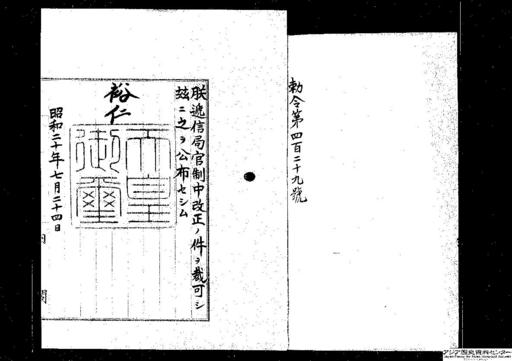 勅令第四百二十九號
朕遞信局官制中改正ノ件ヲ裁可シ
玆ニ之ヲ公布セシム
裕仁
天皇御璽
昭和二十年七月二十四日
内閣
アジア歴史資料センター